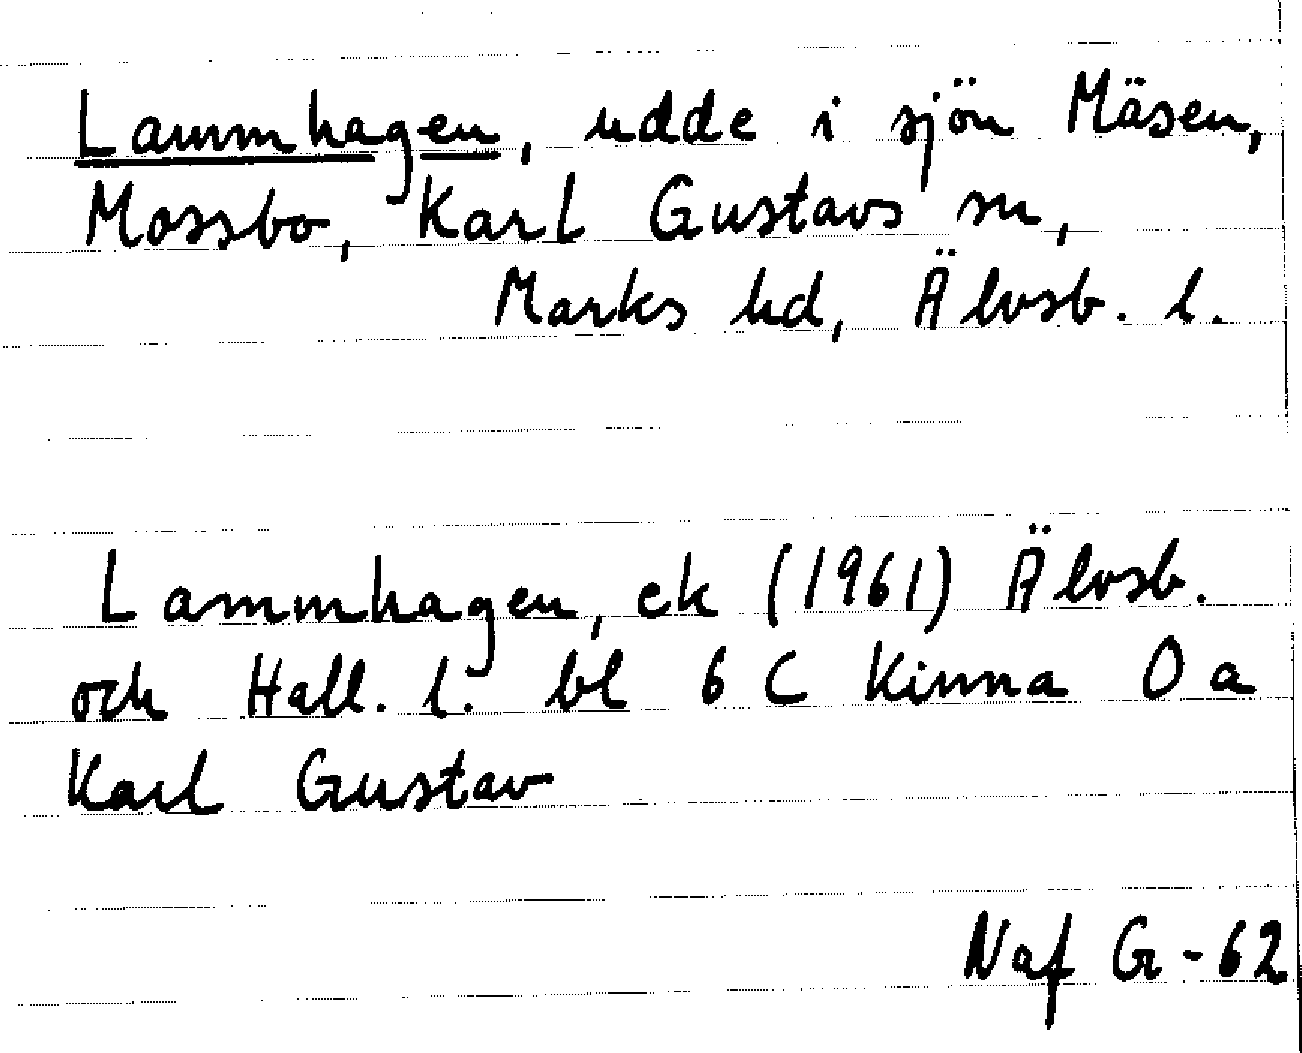 Lammhagen, udde i sjön Mäsen,
Mossbo, Karl Gustavs sn,
Marks hd, Älvsb. l.
Lammhagen, ek (1961) Älvsb.
och Hall. l. bl 6 C Kinna O a
Karl Gustav
Naf G-62